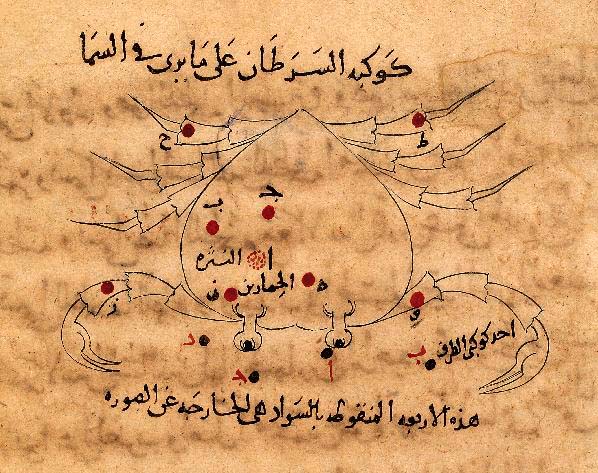 كوكبه السرطان على ما يرى في السما
ح
ط
ب
ج
ا
النثره
الحمارين
ه
ز
و
احد كوكبى الطرف
د
ج
ا
ب
هذه الاربعه المنقوطه بالسواد هى الخارجه عن الصوره